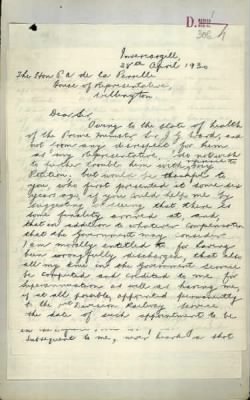 D.
306
Invercargill,
28th April 1930
The Hon P.A. de la Perrelle
House of Representatives,
Wellington
Dear Sir,
Owing to the state of health
of the Prime Minister Sir J.G. Ward, and
not from any disrespect for him
as my representative, I do not wish
to further trouble him with my
Petition, but would be thankful to
you, who first presented it some six
years ago, if you could help me by
suggesting it seems that there is
some finality arrived at, and,
that in addition to whatever compensation
that the Government may consider
I am morally entitled to for having
been wrongfully discharged, that also
all my time in the Government service
be computed and credited to me for
superannuation as well as having me,
if at all possible, appointed permanently
to the Division Railway Service
the date of such appointment to be
subsequent to me, over heard a shot